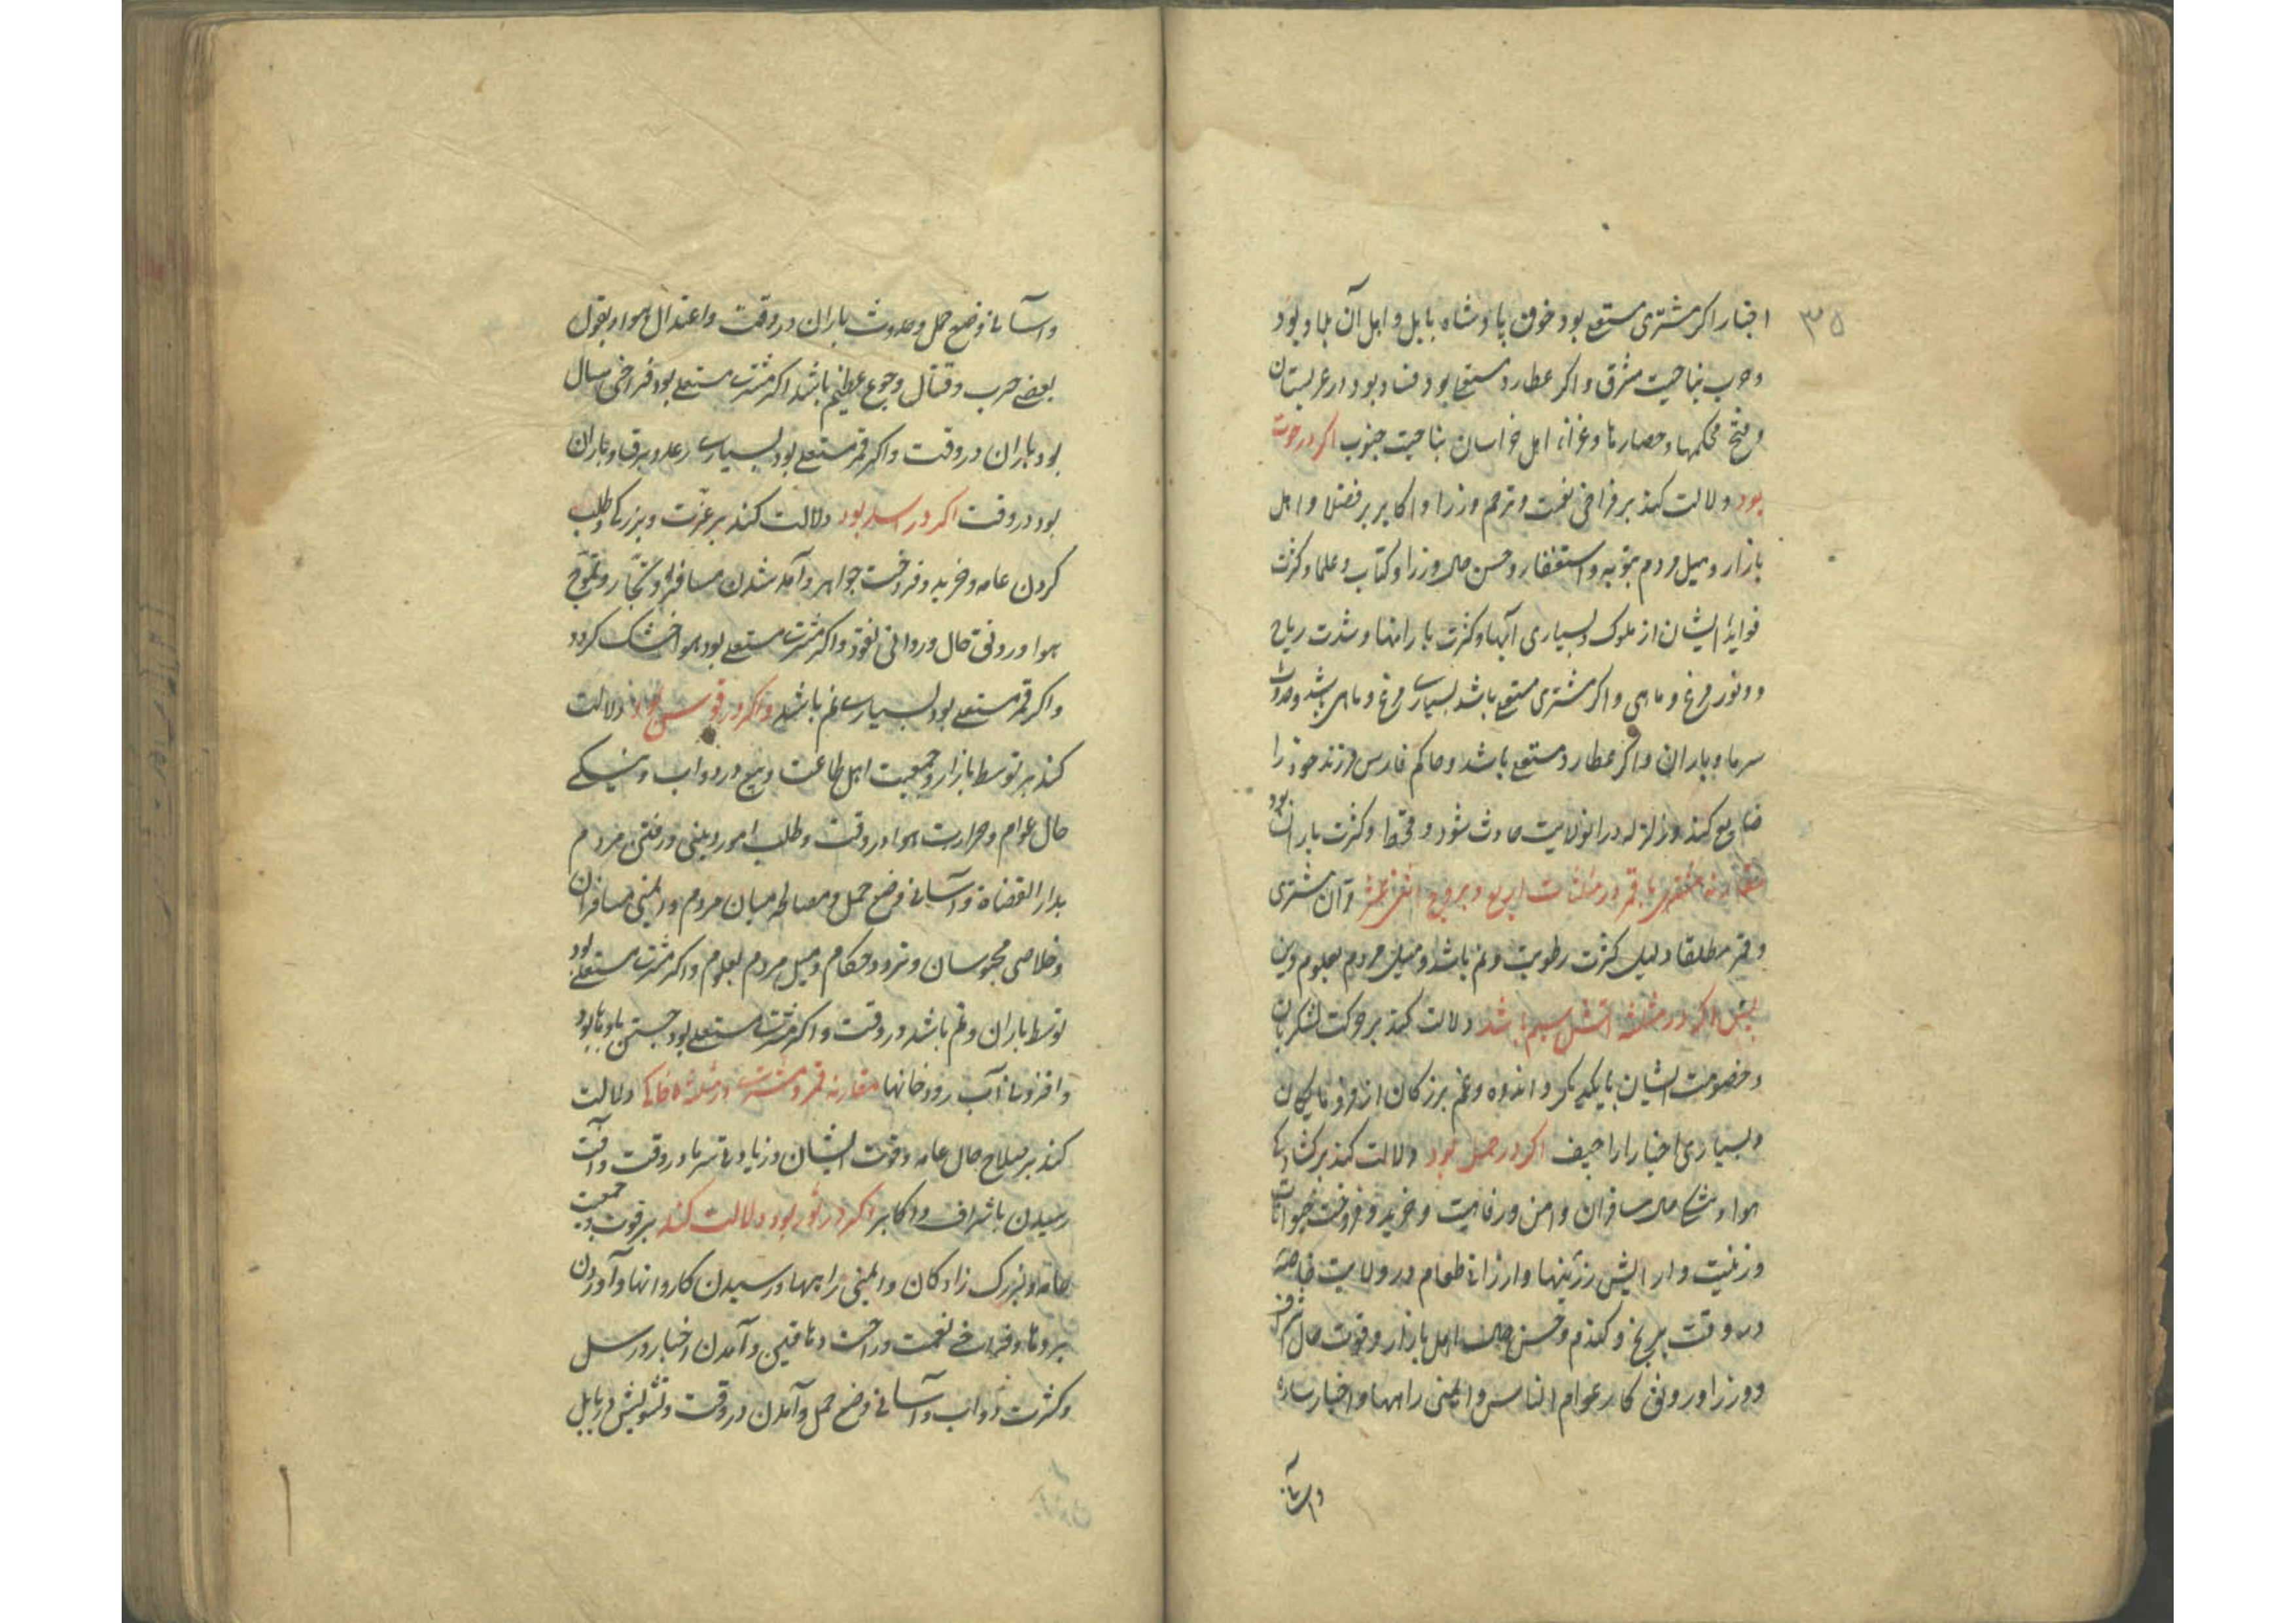 ۳۵
اخبار اکر مشتری مستعلے بود خوف پادشاه بابل و اهل آن بلاد بود
و حرب بناحیت مشرق و اکر عطارد مستعلے بود فساد بود در عربستان
و فتح محکمها و حصارها و غزاء اهل خراسان بناحیت جنوب اکر در حوت
بود دلالت کند بر فراخی نعمت و ترحم وزرا و اکابر بر فضلا و اهل
بازار و میل مردم بتوبه و استغفار و حسن حال وزرا و کتاب و علما و کثرت
فواید ایشان از ملوک و بسیاری آبها و کثرت بارانها و شدت ریاح
و وفور مرغ و ماهی و اکر مشتری مستعلے باشد بسیارے مرغ و ماهی باشد و حدوث
سرما و باران و اکر عطارد مستعلے باشد و حاکم فارس فرزند خود را
ضایع کند و زلزله در انولایت حادث شود و قحط و کثرت باران بود
مقارنه مشتری با قمر در مثلثات اربع و بروج اثنی عشر و آن مشتری
و قمر مطلقا دلیل کثرت رطوبت و نم باشد و میل مردم بعلوم دین
پس اکر در مثلثه آتشی بهم باشد دلالت کند بر حرکت لشکریان
و خصومت ایشان با یکدیکر و اندوه و غم بزرکان از فرومایکان
و بسیاری اخبار اراجیف اکر در حمل بود دلالت کند بر کشادکے
هوا و حال مسافران و امن و رفاهیت و خرید و فروخت حیوانات
و زینت و ارایش زرینها و ارزانے طعام در ولایت خاصه
در وقت برنج و کندم و حسن حال اهل بازار و قوت حال اشراف
و وزرا و رونق کار عوام الناس و ایمنی راهها و اخبار ساره
و آسانے
و آسانے وضع حمل و حدوث باران در وقت و اعتدال هوا و بقول
بعضے حرب و قتال و جوع عظیم باشد اکر مشترے مستعلے بود فراخی سال
بود باران در وقت و اکر قمر مستعلے بود بسیارے رعد و برق و باران
بود در وقت اکر در اسد بود دلالت کند بر عزت و بزرکے و طلب
کردن عامه و خرید و فروخت جواهر و آمد شدن مسافران و تجار و تموج
هوا و رونق حال و روانی نقود و اکر مشترے مستعلے بود هوا خشک کردد
و اکر قمر مستعلے بود بسیارے نم باشد و اکر در قوس بود دلالت
کند بر توسط بازار و جمعیت اهل طاعت و بیع در دواب و نیکے
حال عوام و حرارت هوا در وقت و طلب امور دینی و رفتن مردم
بدار القضاة و آسانے وضع حمل و مصالحه میان مردم و ایمنی مسافران
و خلاصی محبوسان و تردد حکام و میل مردم بعلوم و اکر مشترے مستعلے بود
توسط باران و نم باشد در وقت و اکر مشترے مستعلے بود جستن بادها بود
و افزونے آب رودخانها مقارنه قمر و مشترے در مثلثه خاکے دلالت
کند بر صلاح حال عامه و قوت ایشان و زیادتے سرما در وقت و آفت
رسیدن باشراف و اکابر اکر در ثور بود دلالت کند بر قوت و جمعیت
عامه و بزرک زادکان و ایمنی راهها و رسیدن کاروانها و آوردن
بردها و فراخے نعمت و راحت دهاقین و آمدن اخبار و رسل
و کثرت دواب و آسانے وضع حمل و آمدن در وقت و تشویش در بابل